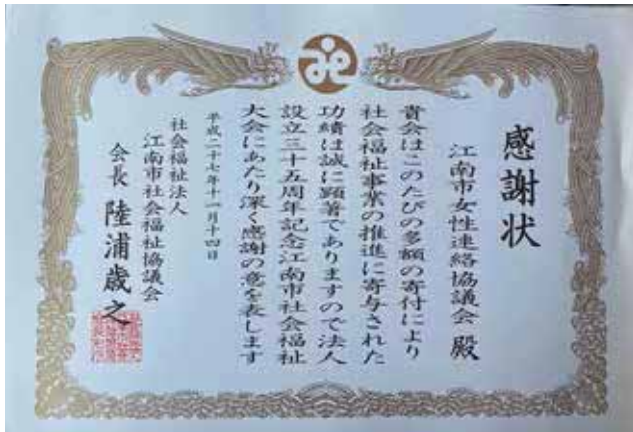 感謝状
江南市女性連絡協議会 殿
貴会はこのたびの多額の寄付により
社会福祉事業の推進に寄与された
功績は誠に顕著でありますので法人
設立三十五周年記念江南市社会福祉
大会にあたり深く感謝の意を表します
平成二十七年十一月十四日
社会福祉法人
江南市社会福祉協議会
会長 陸浦歳之